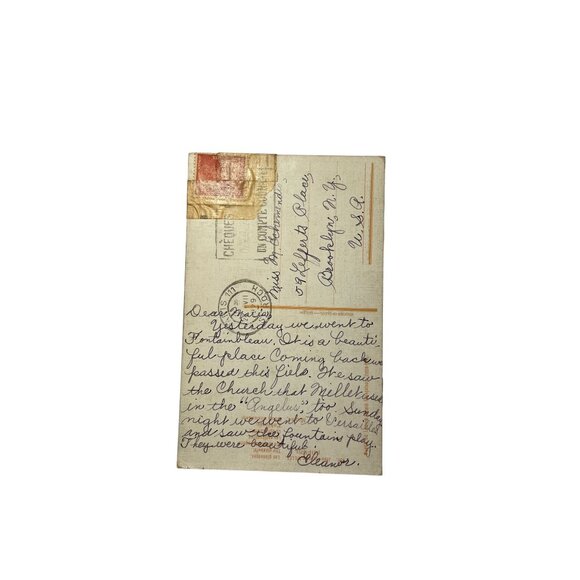 Dear Marie,
Yesterday we went to
Fontainbleau. It is a beauti-
ful place Coming back we
passed this field. We saw
the Church that Millet used
in the "Angelus," too Sunday
night we went to Versailles
and saw the fountain play.
They were beautiful.
Eleanor.
Miss M.
59 Lefferts Place
Brooklyn, N.Y.
U.S.A.
CHÈQUES
UN COMPTE COURANT
PARIS 111